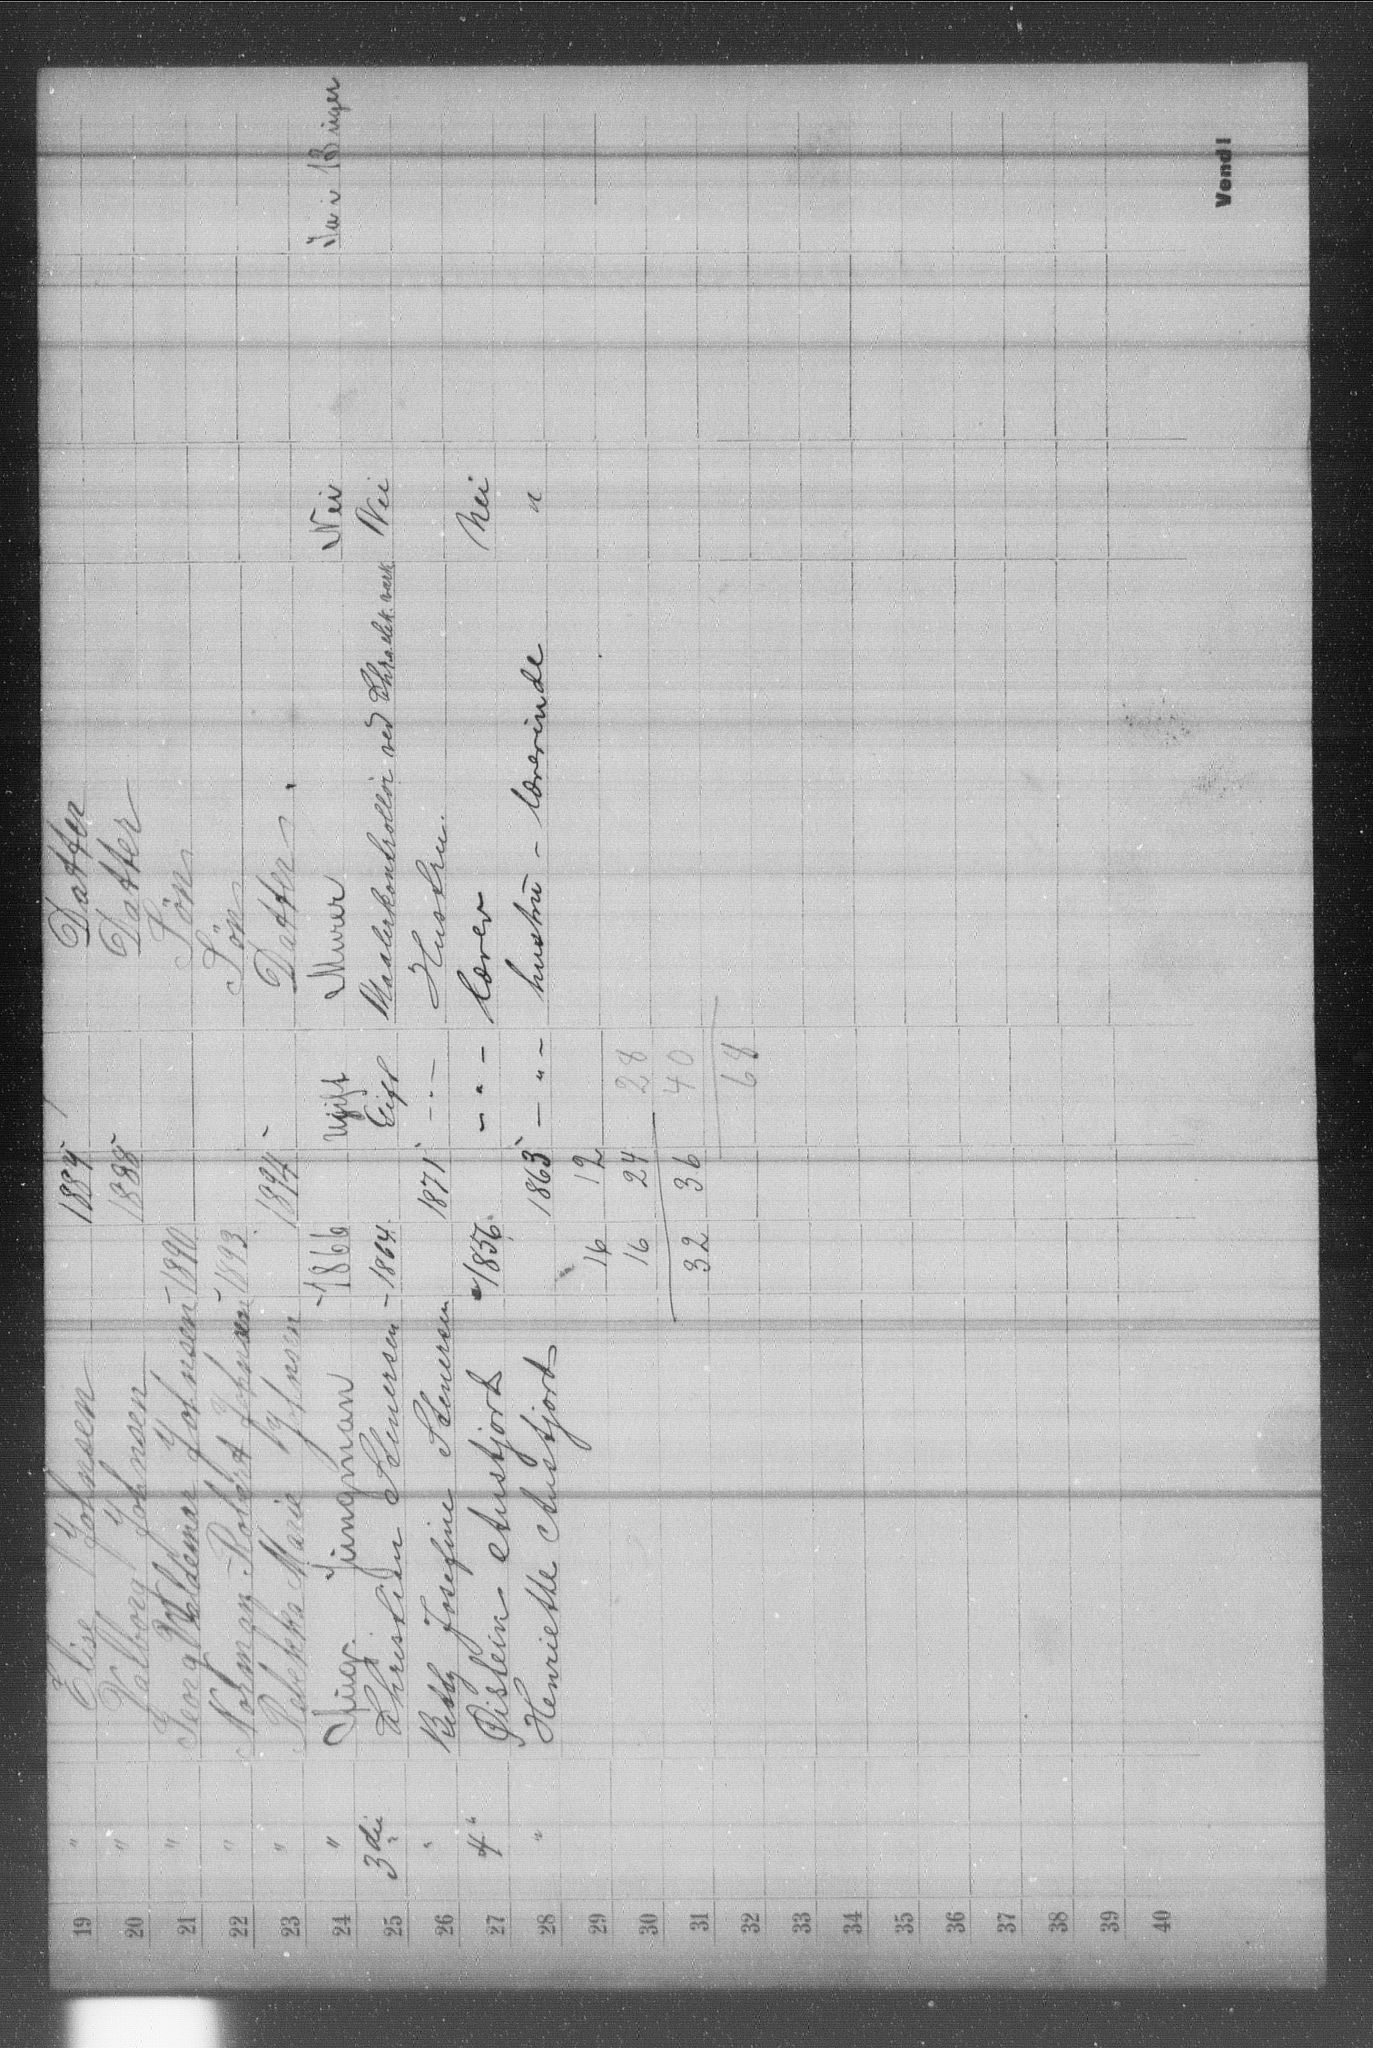 19 " Elise Johnsen 1884 / Datter
20 " Valborg Johnsen 1888 Datter
21 " Georg Valdemar Johnsen - 1890 Sön
22 " Norman Robert Johnsen - 1893 Sön
23 " Rebekka Marie Johnsen 1894 - Datter
24 " Jungman - 1866 Ugift Murer Nei Ja i 13 uger
25 3die Christian Stenersen - 1864 Gift Maalerkontrollör ved Nei
26 " Josefine Stenersen 1871 - " - Hustru
27 4 " Øistein Austjord 1856 - " - lærer Nei
28 " Henriette Austjord 1863 - " - hustru - lærerinde "
29 16 12
30 16 24 28
31 32 36 40
32 68
33
34
35
36
37
38
39
40
Vend!